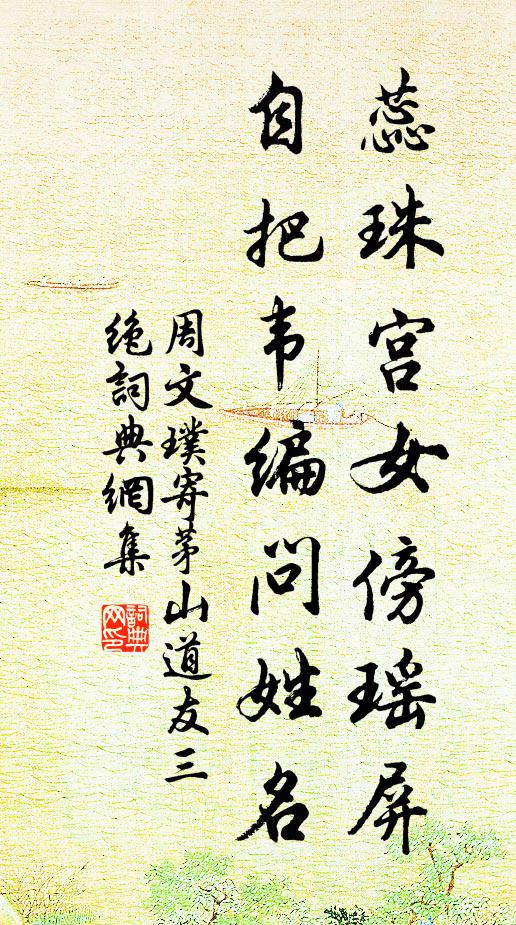 蕊珠宫女傍瑶屏
自把韦编问姓名
周文璞寄茅山道友三
绝詞典網集
詞典
网印